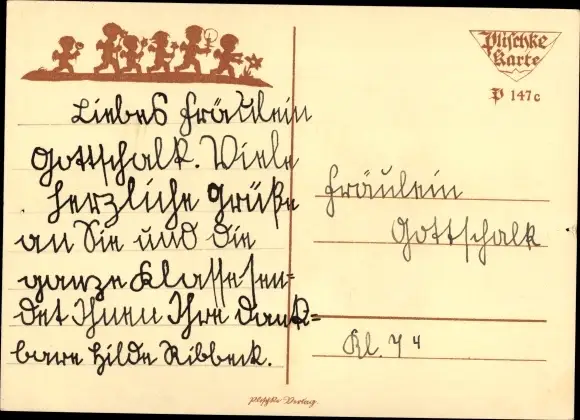 Plischke
Karte
P 147c
Liebes Fräulein
Gottschalk. Viele
herzliche Grüße
an Sie und die
ganze Klasse sen-
det Ihnen Ihre dank=
bare Hilde Ribbeck.
Fräulein
Gottschalk
Kl. 7⁴
Plischke-Verlag